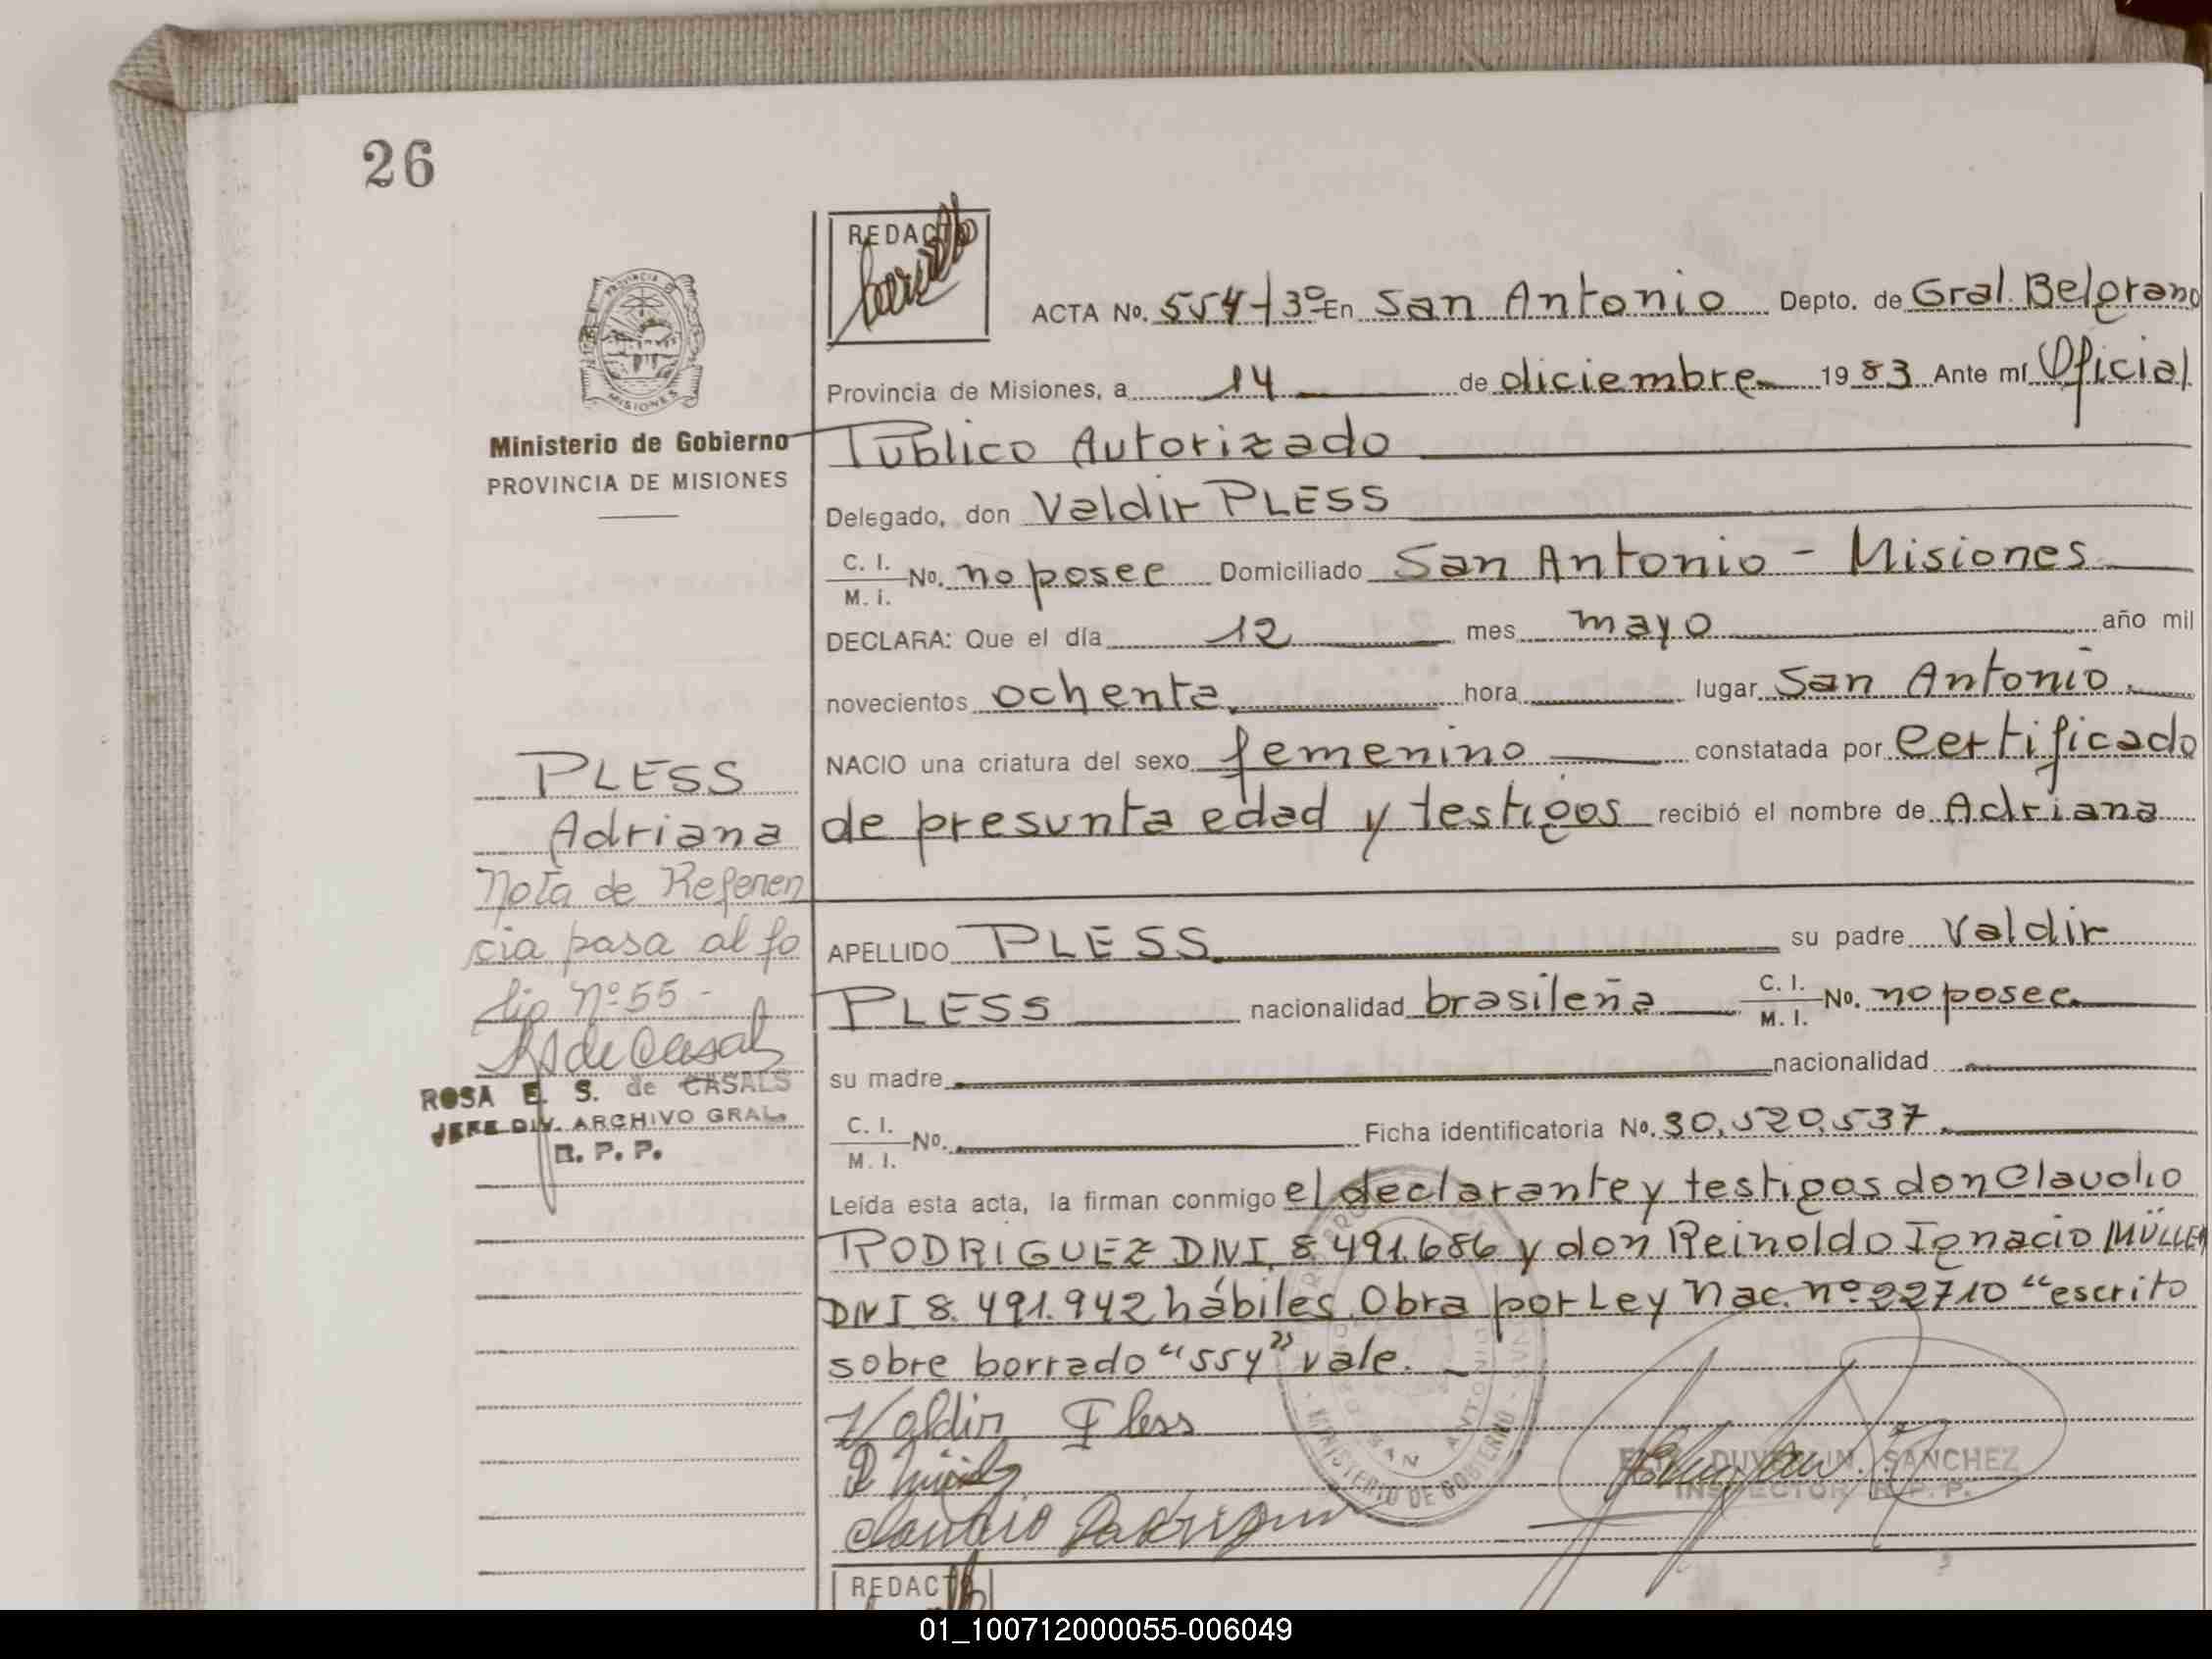 26
REDACTO
ACTA No. 554-/3º En San Antonio Depto. de Gral. Belgrano
Provincia de Misiones, a 14 de diciembre 1983 Ante mí Oficial
Ministerio de Gobierno
PROVINCIA DE MISIONES
Público Autorizado
Delegado, don Valdir PLESS
C. I. M. I. No. no posee Domiciliado San Antonio - Misiones
DECLARA: Que el día 12 mes mayo año mil
novecientos ochenta. hora lugar San Antonio.
NACIO una criatura del sexo femenino constatada por certificado
de presunta edad y testigos recibió el nombre de Adriana
PLESS
Adriana
Nota de Referen
cia pasa al fo
lio Nº 55 -
ROSA E. S. de CASALS
JEFE DIV. ARCHIVO GRAL.
R. P. P.
APELLIDO PLESS su padre Valdir
PLESS nacionalidad brasileña C. I. M. I. No. no posee
su madre nacionalidad
C. I. M. I. No. Ficha identificatoria No. 30.520.537.
Leída esta acta, la firman conmigo el declarante y testigos don Claudio
RODRIGUEZ DNI. 8.491.686 y don Reinoldo Ignacio MÜLLER
DNI 8.491.942 hábiles. Obra por Ley Nac. nº 22710 "escrito
sobre borrado "554" vale.
Valdir Pless
Claudio Rodriguez
MINISTERIO DE GOBIERNO
SAN ANTONIO
SANCHEZ
INSPECTOR R. P. P.
REDACTO
01_100712000055-006049